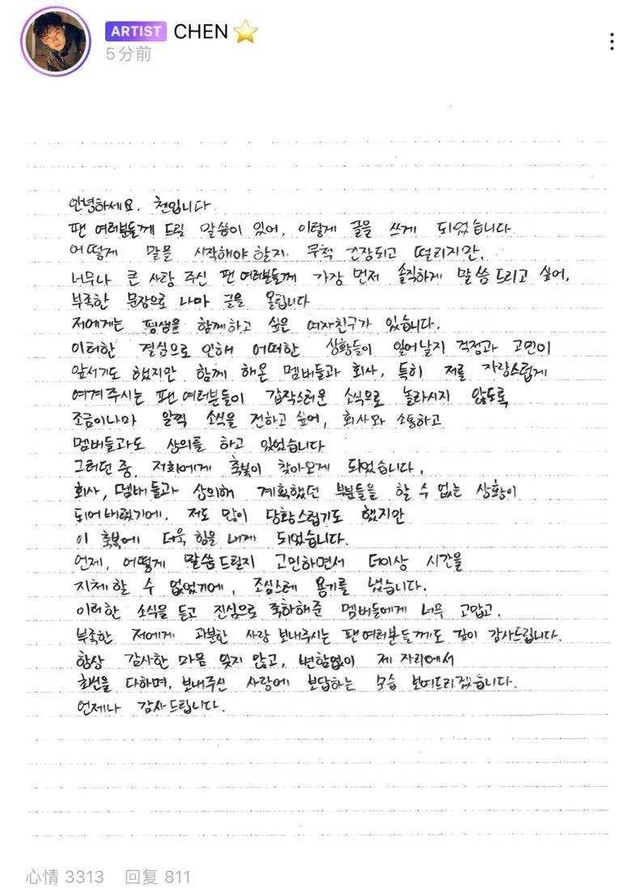 ARTIST CHEN
5分前
안녕하세요. 첸입니다
팬 여러분들께 드릴 말씀이 있어, 이렇게 글을 쓰게 되었습니다
어떻게 말을 시작해야 할지 무척 긴장되고 떨리지만,
너무나 큰 사랑 주신 팬 여러분들께 가장 먼저 솔직하게 말씀드리고 싶어,
부족한 문장으로나마 글을 올립니다
저에게는 평생을 함께하고 싶은 여자친구가 있습니다.
이러한 결심으로 인해 어떠한 상황들이 일어날지 걱정과 고민이
앞서기도 했지만 함께 해온 멤버들과 회사, 특히 저를 자랑스럽게
여겨주시는 팬 여러분들이 갑작스러운 소식으로 놀라시지 않도록
조금이나마 일찍 소식을 전하고 싶어, 회사와 소통하고
멤버들과도 상의를 하고 있었습니다
그러던 중, 저희에게 축복이 찾아오게 되었습니다.
회사, 멤버들과 상의해 계획했던 부분들을 할 수 없는 상황이
되어버렸기에. 저도 많이 당황스럽기도 했지만
이 축복에 더욱 힘을 내게 되었습니다.
언제, 어떻게 말씀드릴지 고민하면서 더이상 시간을
지체할 수 없었기에, 조심스레 용기를 냈습니다.
이러한 소식을 듣고 진심으로 축하해준 멤버들에게 너무 고맙고,
부족한 저에게 과분한 사랑 보내주시는 팬여러분들께도 깊이 감사드립니다.
항상 감사한 마음 잊지 않고, 변함없이 제 자리에서
최선을 다하며, 보내주신 사랑에 보답하는 모습 보여드리겠습니다.
언제나 감사드립니다.
心情 3313 回复 811